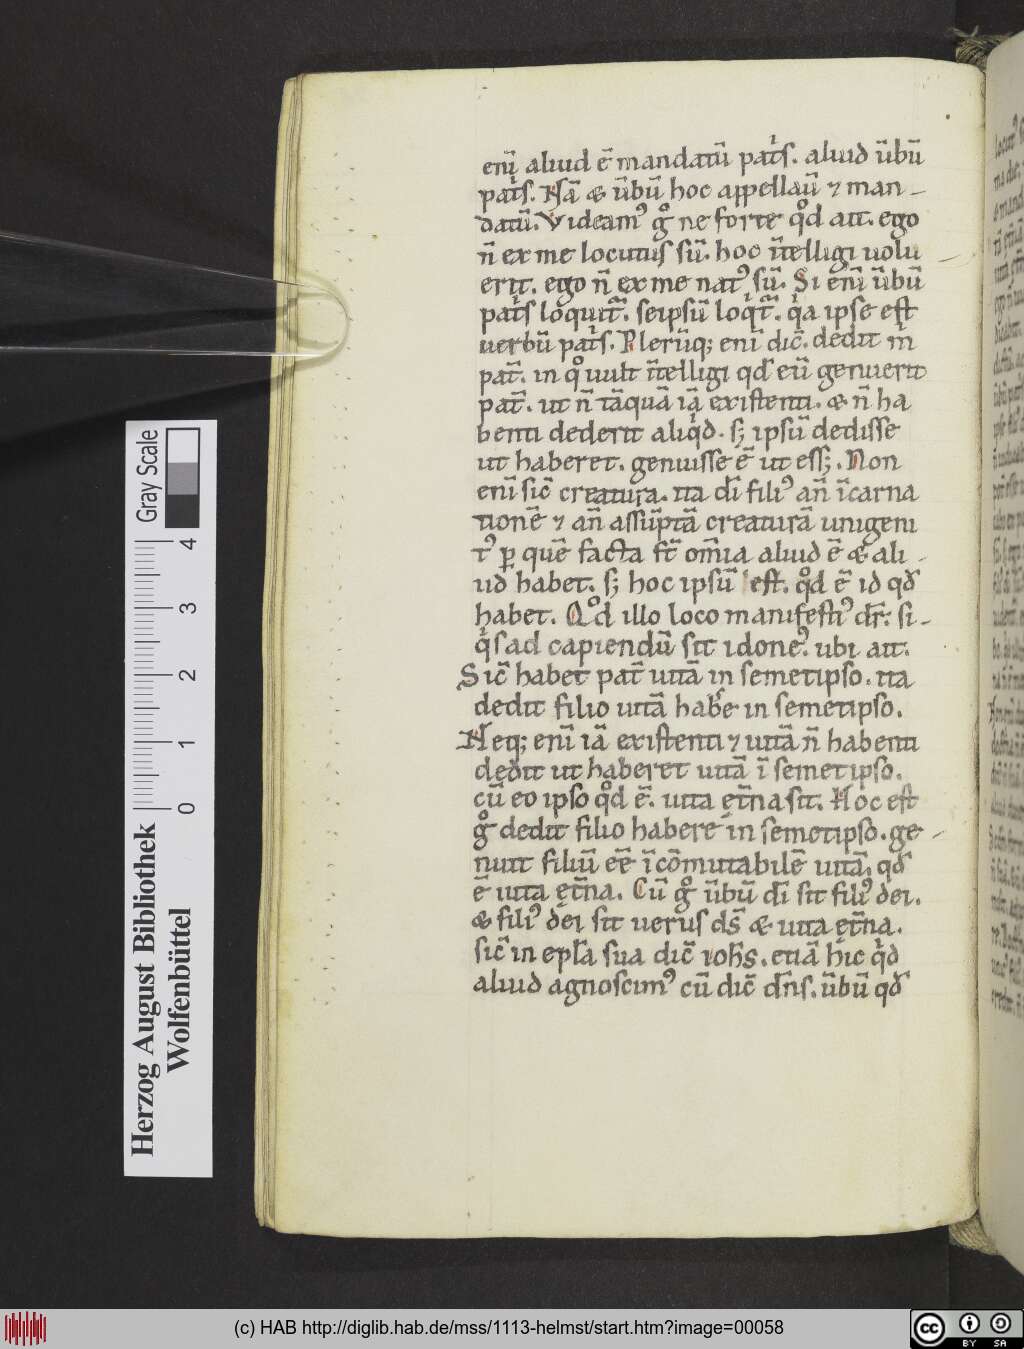 enī aliud ē mandatū pat̾s. aliud ūbū
pat̾s. Nā & ūbū hoc appellaū ⁊ man-
datū. Videamꝰ gͦ ne forte qͦd ait. ego
n̄ ex me locutus sū. hoc īt̄elligi uolu
erit. ego n̄ ex me natꝰ sū. Si enī ūbū
pat̾s loquit̄. seipsū loqⁱt̄. qⁱa ipse est
uerbū pat̾s. Plerūq; enī dic̄. dedit mⁱ
pat̄. in qͦ uult īt̄elligi qd̄ eū genuerit
pat̄. ut n̄ tāquā iā existenti. & n̄ ha
benti dederit aliqⁱd. s; ipsū dedisse
ut haberet. genuisse ē ut ess;. Non
enī sic̄ creatura. ita dī filiꝰ an̄ īcarna
tionē ⁊ an̄ assūptā creaturā unigeni
tꝰ ꝑ quē facta st̄ om̄ia aliud ē & ali-
ud habet. s; hoc ipsū est. qͦd ē id qd̄
habet. Qͦd illo loco manifestiꝰ dr̄. si-
qⁱs ad capiendū sit idoneꝰ. ubi ait.
Sic̄ habet pat̄ uitā in semetipso. ita
dedit filio uitā hab̾e in semetipso.
Neq; enī iā existenti ⁊ uitā n̄ habenti
dedit ut haberet uitā ī semetipso.
cū eo ipso qͦd ē. uita et̄na sit. Hoc est
gͦ dedit filio habere in semetipso. ge-
nuit filiū eē īcōmutabilē uitā. qd̄
ē uita et̄na. Cū gͦ ūbū dī sit filiꝰ dei.
& filiꝰ dei sit uerus ds̄ & uita et̄na.
sic̄ in epl̄a sua dic̄ ioh̄s. etiā hic qⁱd
aliud agnoscimꝰ cū dic̄ dn̄s. ūbū qd̄
Gray Scale
4
3
2
1
0
Herzog August Bibliothek
Wolfenbüttel
(c) HAB http://diglib.hab.de/mss/1113-helmst/start.htm?image=00058
cc
BY SA